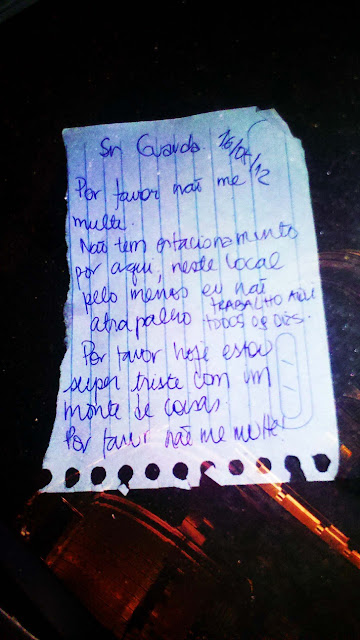 Sr. Guarda. 16/04/12
Por favor não me
multe.
Não tem estacionamento
por aqui, neste local
pelo menos eu não
atrapalho TRABALHO AQUI
TODOS OS DIAS.
Por favor hoje estou
super triste com um
monte de coisas.
Por favor não me multe!